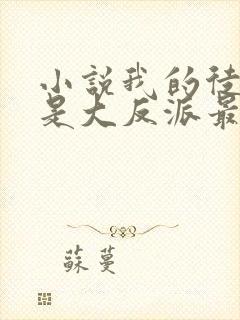 小說我的徒
是大反派最
蘇蔓